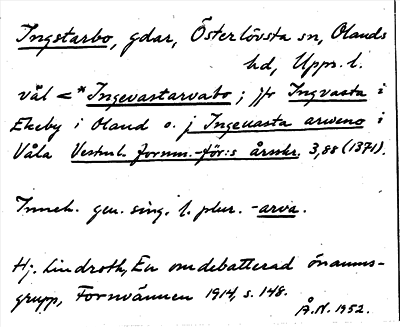 Ingstarbo, gdar, Österlövsta sn, Olands
hd, Upps. l.
väl <*Ingevastarvabo; jfr Ingvasta i
Ekeby i Oland o. j Ingeuasta arweno i
Våla Vestml. fornm.-för:s årsskr. 3,88 (1371).
Inneh. gen. sing. l. plur. -arva.
Hj. Lindroth, En omdebatterad önamns-
grupp, Fornvännen 1914, s. 148.
Å.N. 1952.